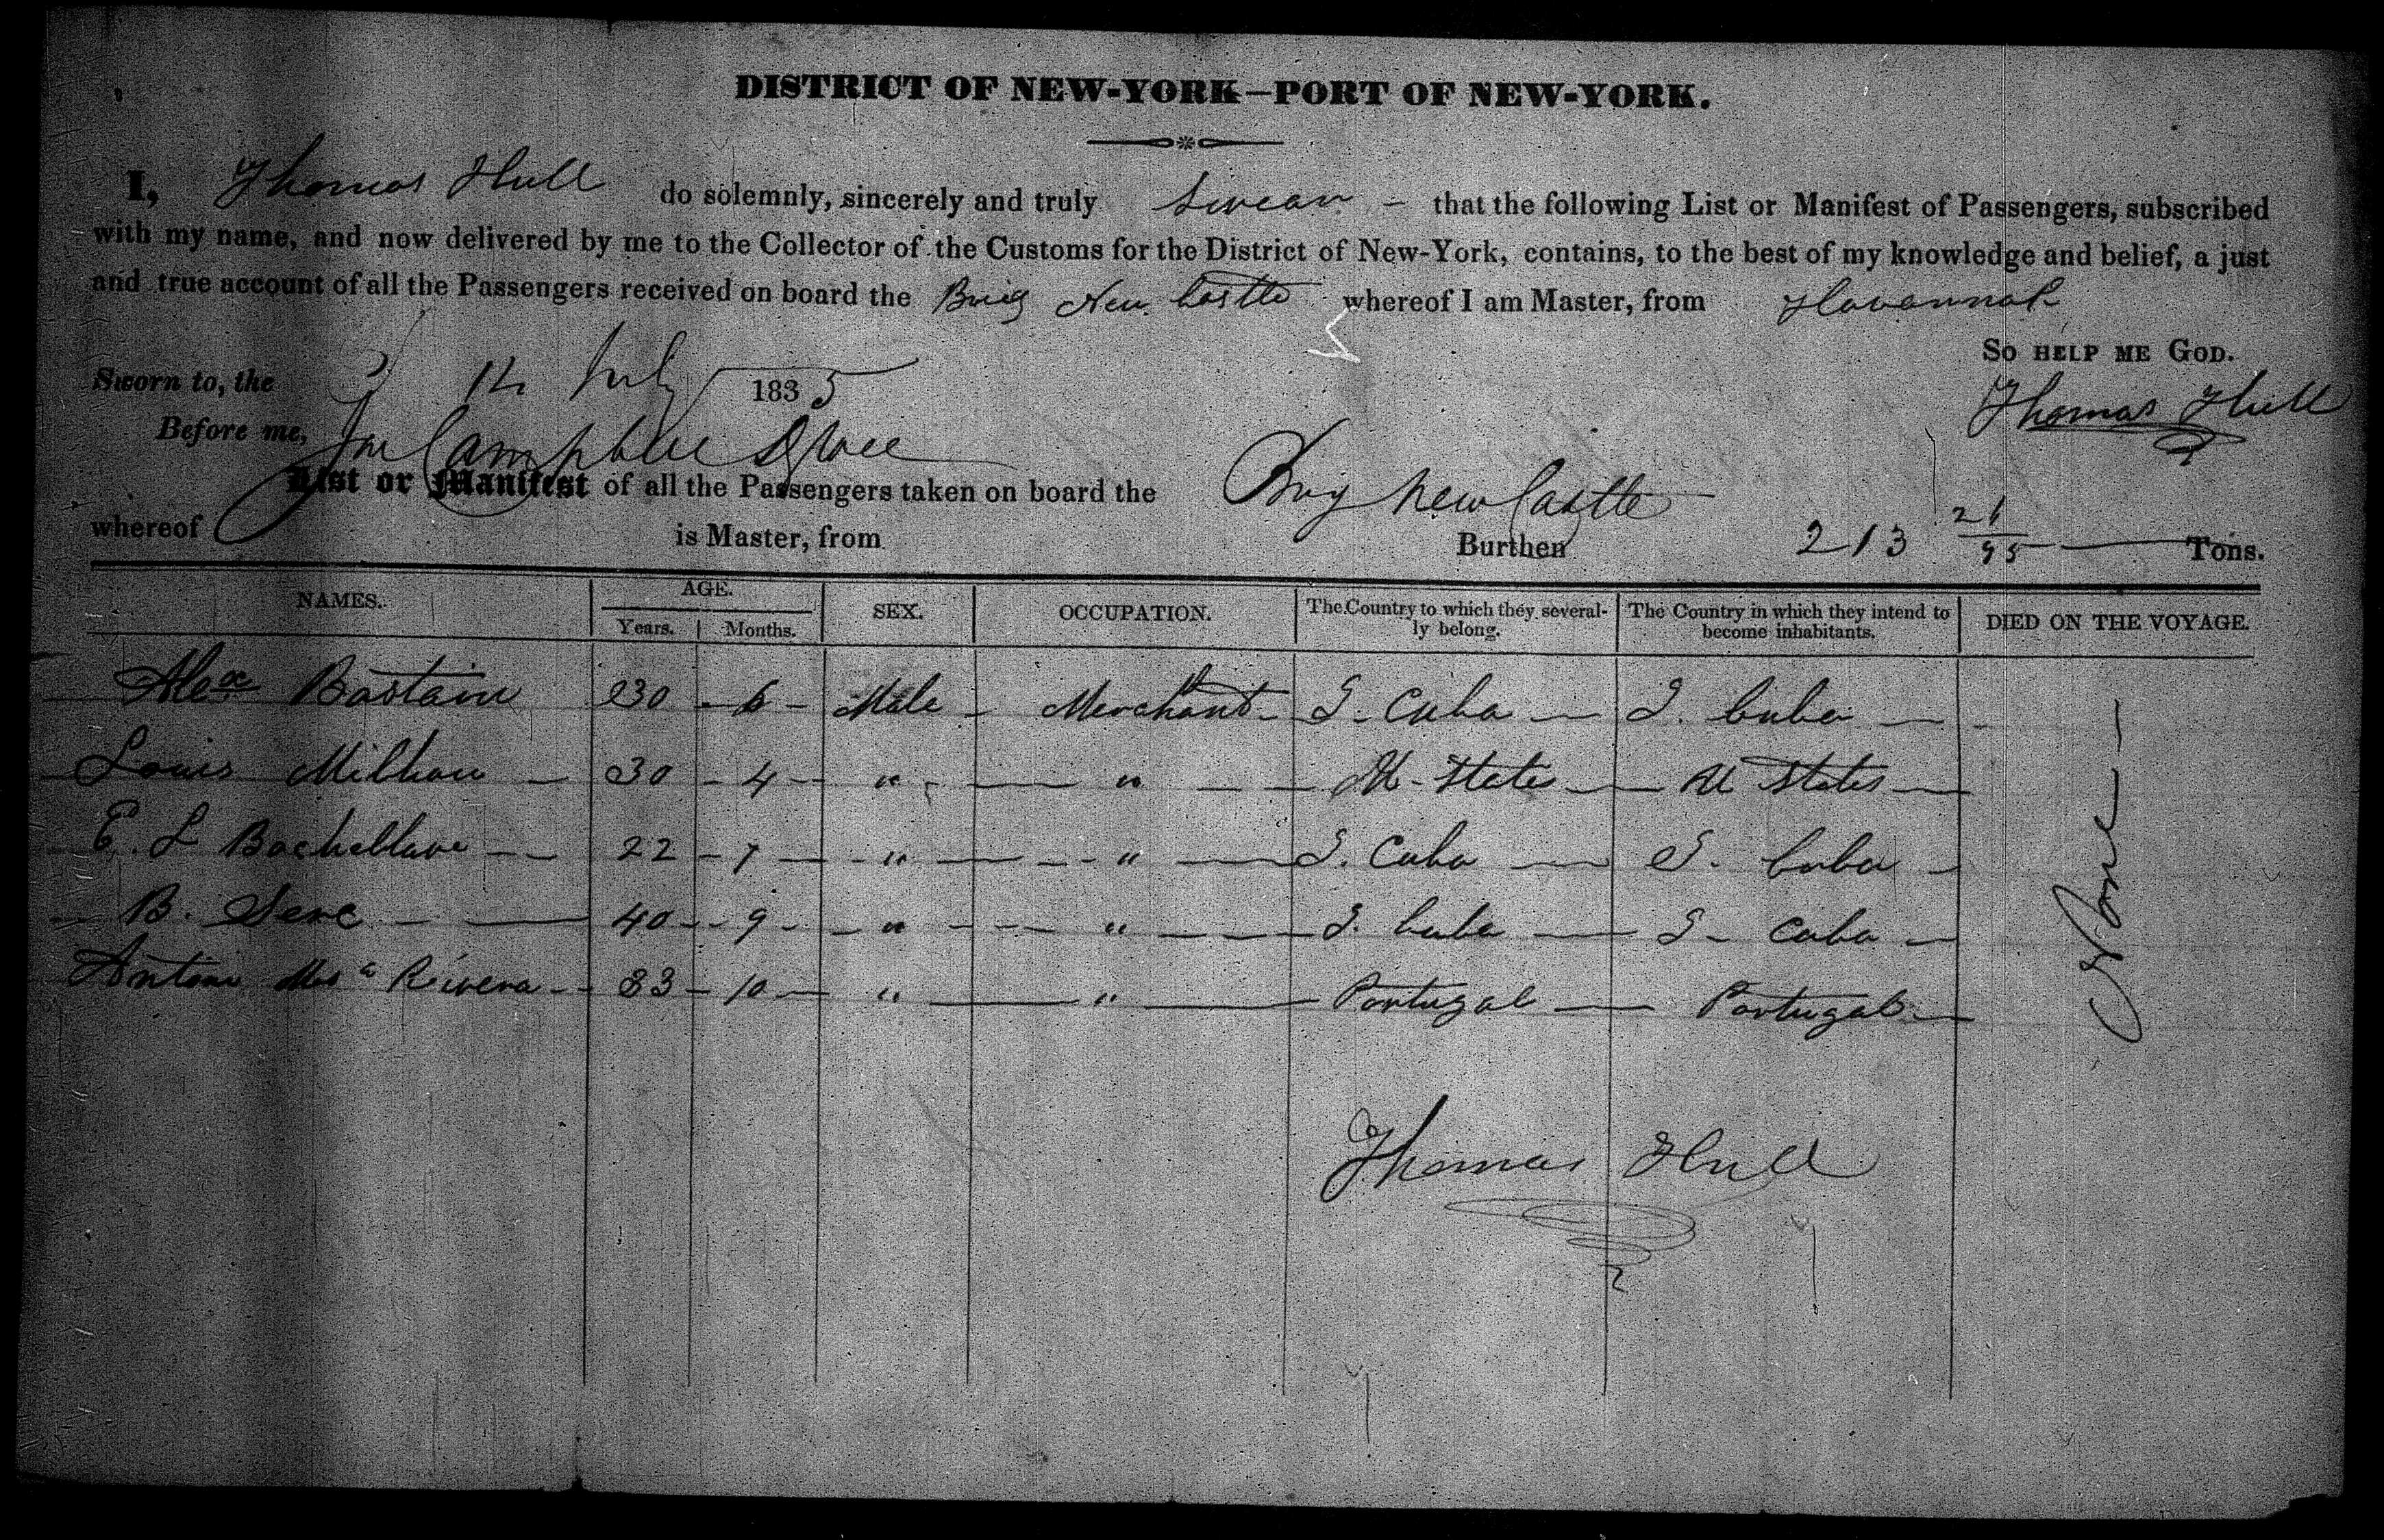 DISTRICT OF NEW-YORK—PORT OF NEW-YORK.
I, Thomas Hull do solemnly, sincerely and truly Swear - that the following List or Manifest of Passengers, subscribed
with my name, and now delivered by me to the Collector of the Customs for the District of New-York, contains, to the best of my knowledge and belief, a just
and true account of all the Passengers received on board the Brig New Castle whereof I am Master, from Havannah
So help me God.
Sworn to, the 14 July 1835
Thomas Hull
Before me, Campbell
List or Manifest of all the Passengers taken on board the Brig New Castle
whereof is Master, from Burthen 213 21/95 Tons.
NAMES. AGE. Years. Months. SEX. OCCUPATION. The Country to which they severally belong. The Country in which they intend to become inhabitants. DIED ON THE VOYAGE.
Alex Bastain 30 - 6 - Male - Merchant - I - Cuba — I. Cuba —
Louis Milhau — 30 - 4 — " — " — U - States — U States —
E. L 22 - 7 — " — " — I. Cuba — I. Cuba —
B. Sere — 40 - 9 - " — " — I. Cuba — I - Cuba —
Antoni Rivera - 33 - 10 — " — " — Portugal — Portugal —
None —
Thomas Hull